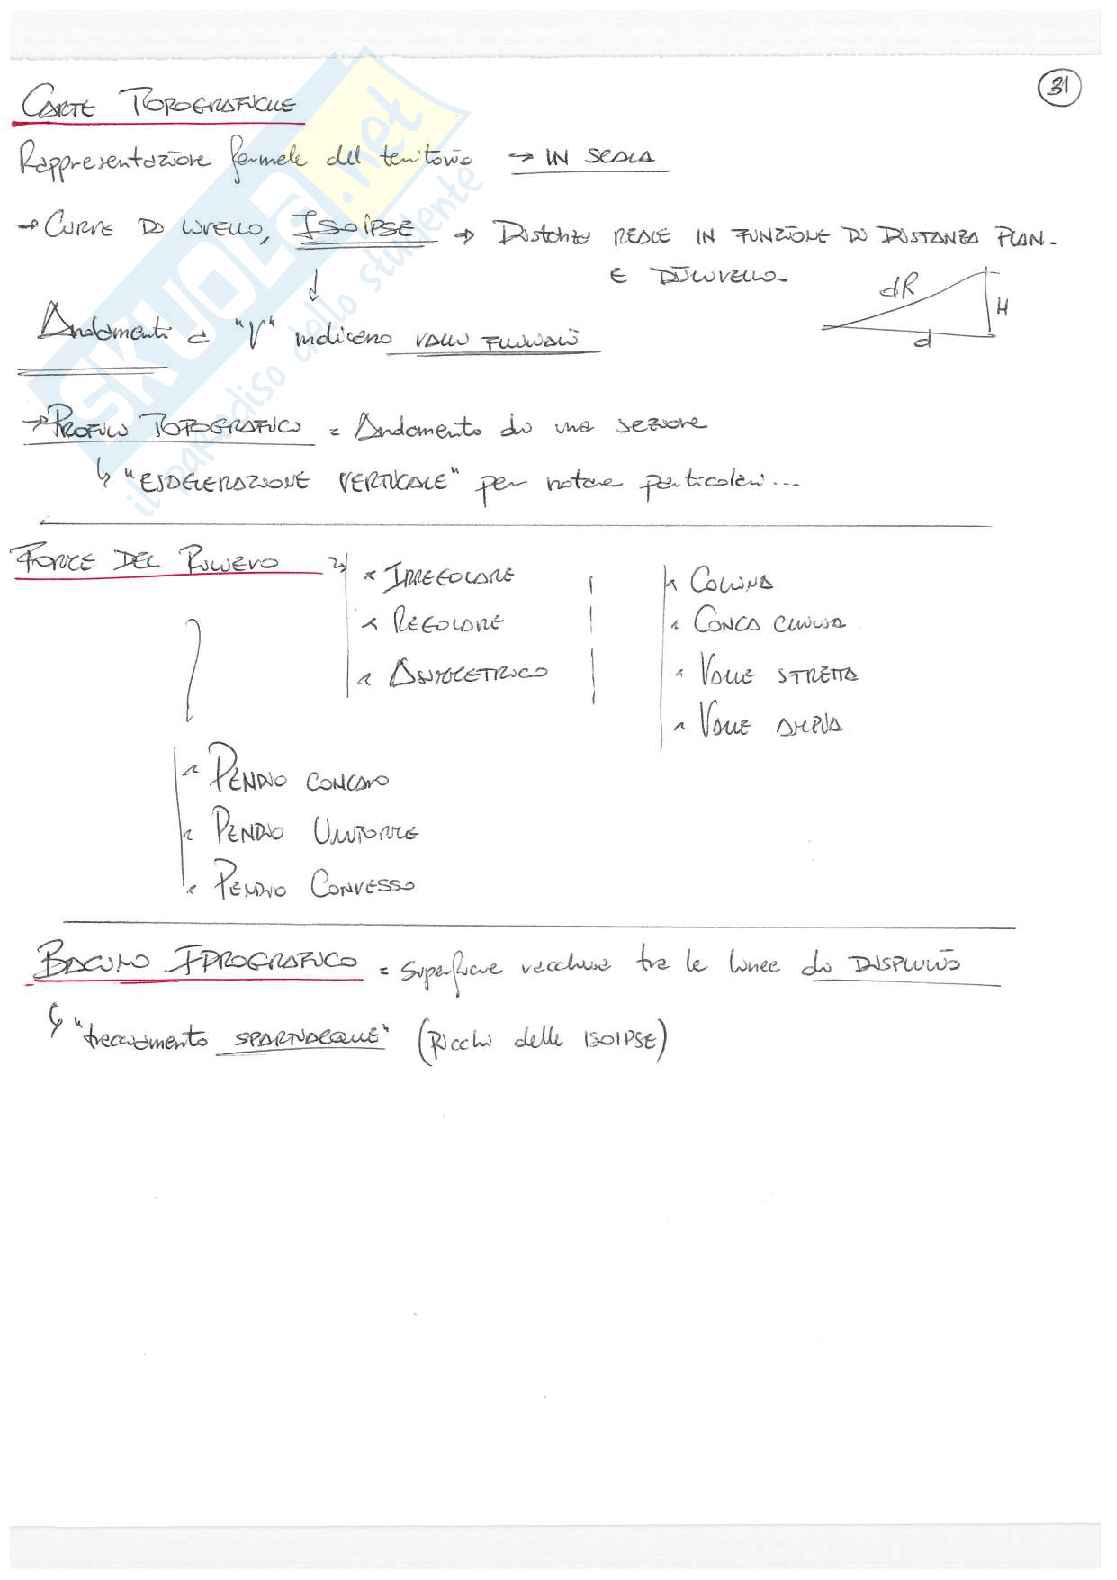 31
CARTE TOPOGRAFICHE
Rappresentazione formale del territorio → IN SCALA
→ CURVE DI LIVELLO, ISOIPSE → Distanza REALE IN FUNZIONE DI DISTANZA PLAN.
E DISLIVELLO.
dR
H
d
Andamenti a "V" indicano VALLI FLUVIALI
→ PROFILO TOPOGRAFICO = Andamento di una sezione
↳ "ESAGERAZIONE VERTICALE" per notare particolari...
FORME DEL RILIEVO
IRREGOLARE
REGOLARE
ASIMMETRICO
COLLINA
CONCA CHIUSA
VALLE STRETTA
VALLE AMPIA
PENDIO CONCAVO
PENDIO UNIFORME
PENDIO CONVESSO
BACINO IDROGRAFICO = Superficie racchiusa tra le linee di DISPLUVIO
↳ "tracciamento SPARTIACQUE" (Picchi delle ISOIPSE)
SKUOLA.net
il paradiso dello studente